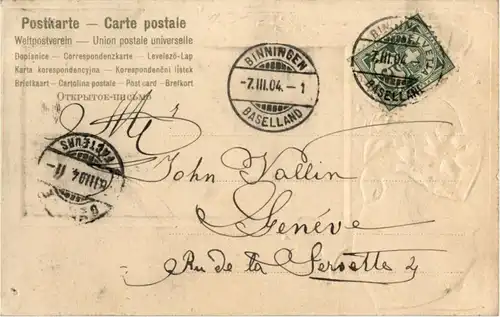 Postkarte — Carte postale
Weltpostverein — Union postale universelle
Dopisnice — Correspondenzkarte — Levelező-Lap
Karta korespondencyjna — Korespondenční lístek
Briefkaart — Cartolina postale — Postcard — Brefkort
ОТКРЫТОЕ-ПИСЬМО
BINNINGEN
-7.III.04.-1
BASELLAND
BINNINGEN
-7.III.04.
BASELLAND
HELVETIA
FACTEURS
III.04.-11
Mr
John Vallin
Genève
Rue de la Servette 2